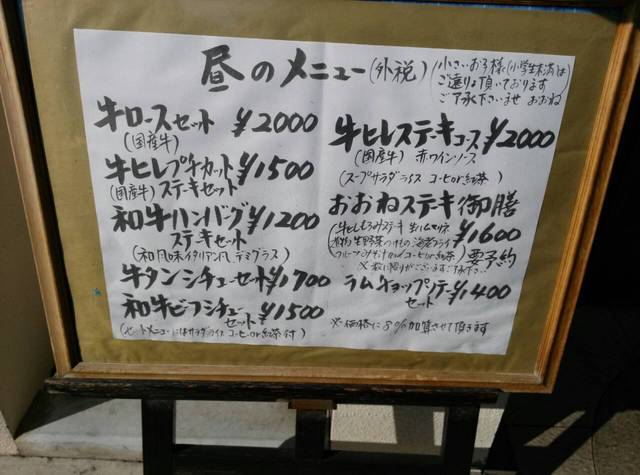 昼のメニュー(外税)
(小さいお子様(小学生未満)は
ご遠りょ頂いております
ご了承下さいませ おおね
牛ロースセット ¥2000
(国産牛)
牛ヒレプチカット ¥1500
(国産牛)ステーキセット
和牛ハンバーグ ¥1200
ステーキセット
(和風味イタリアン風デミグラス)
牛タンシチューセット ¥1700
和牛ビーフシチュー
セット ¥1500
(セットメニューにはサラダライス コーヒor紅茶付)
牛ヒレステーキコース ¥2000
(国産牛) 赤ワインソース
(スープサラダライス コーヒor紅茶)
おおねステーキ御膳
¥1600
要予約
ラムチョップソテー ¥1400
セット
※価格に8%加算させて頂きます